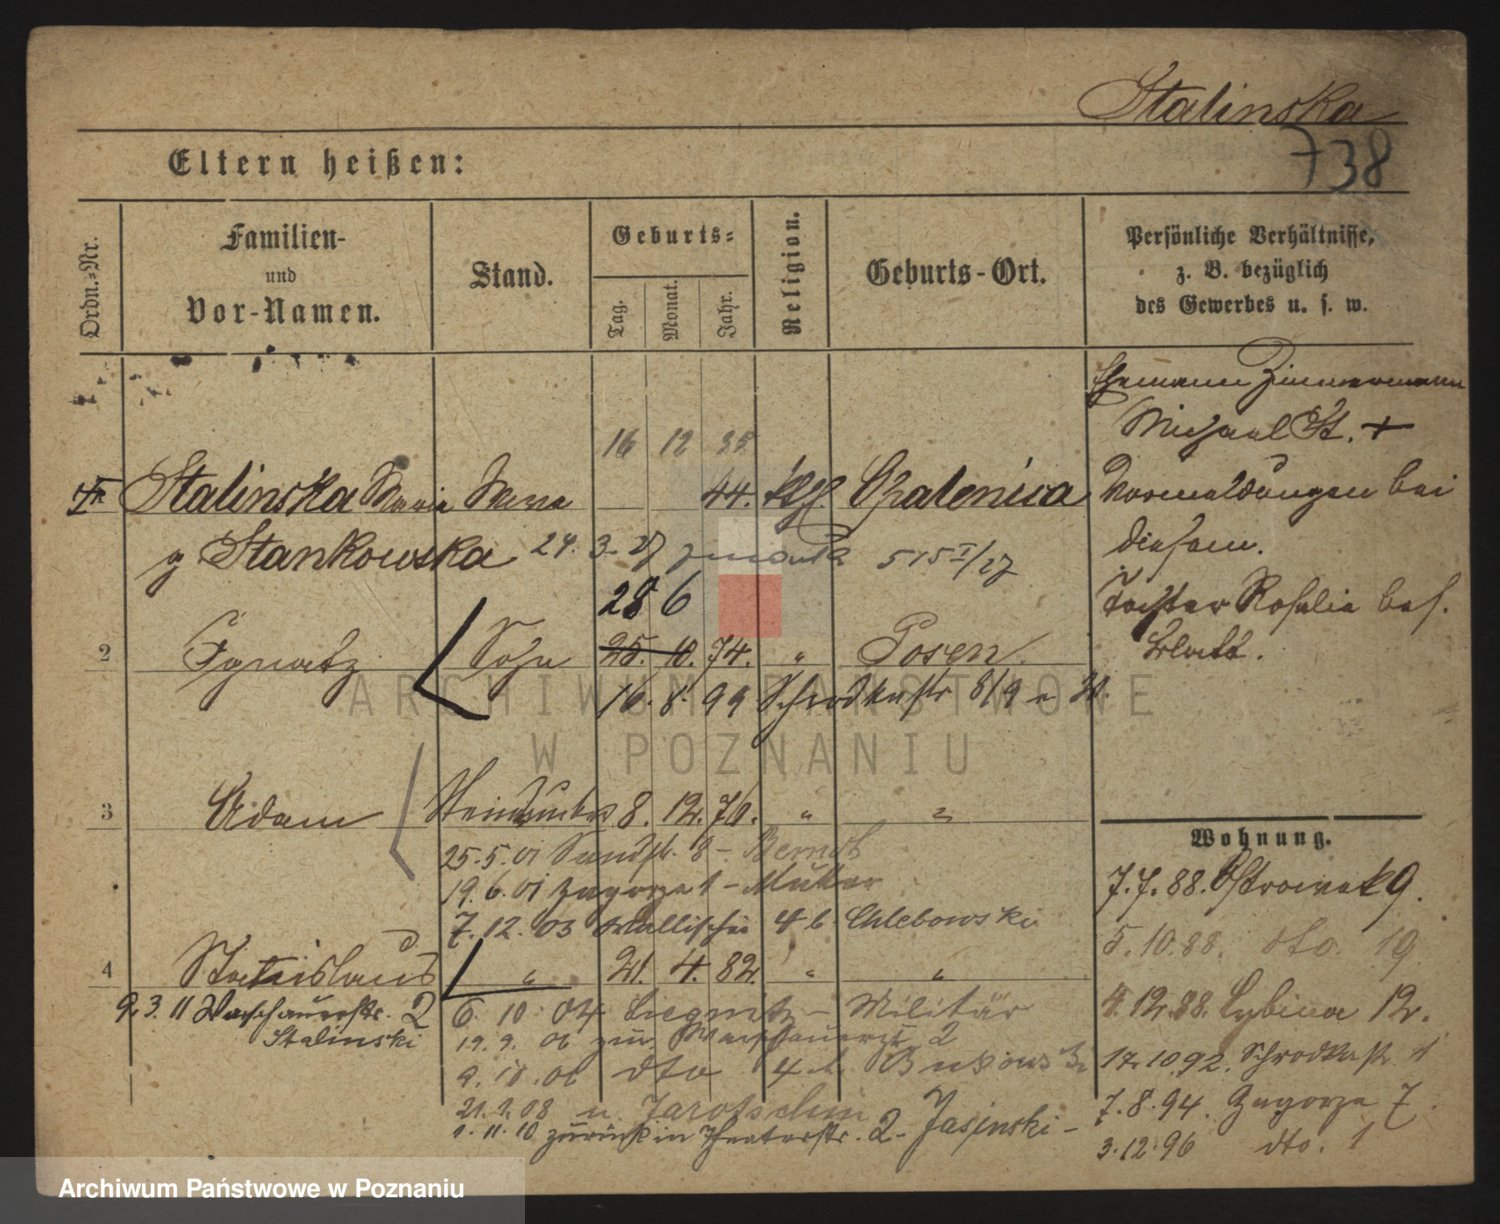 Stalinska
738
Eltern heißen:
Ordn.-Nr.
Familien-
und
Vor-Namen.
Stand.
Geburts-
Tag.
Monat.
Jahr.
Religion.
Geburts-Ort.
Persönliche Verhältnisse,
z. B. bezüglich
des Gewerbes u. s. w.
Ehemann Zimmermann
Michael St. +
16 12
Stalinska Maria 44. Opalenica
Vormeldungen bei
g Stankowska 24. 3. 27 zmarła 515 I/27
diesem.
28 6
Tochter Rosalia bes.
Blatt.
2 Ignatz Sohn 25. 10. 74. " Posen.
16. 8. 99 Schrodkastr 8/9
3 Adam 8. 12. 70. " "
Wohnung.
25.5.01 8 - Berndt
19.6.01 Zagorze 1 - Mutter
7.12.03 Wallischei 46 Chlebowski
7.7.88. Ostrowek 9.
5.10.88. dto. 19
4 Stanislaus " 21. 4. 82. " "
9.3.11 Warschauerstr. 2
Stalinski
6. 10. 04 Liegnitz - Militär
19. 9. 06 zur. Warschauerst 2
9. 10. 06 dto
21.9.08 n. Jarotschin
1. 11. 10 zurück in Theaterstr. 2 - Jasinski -
4.12.88. Rybina 12.
17.10.92. Schrodkastr 1
7.8.94. Zagorze 7.
3.12.96 dto. 1
ARCHIWUM PAŃSTWOWE
W POZNANIU
Archiwum Państwowe w Poznaniu